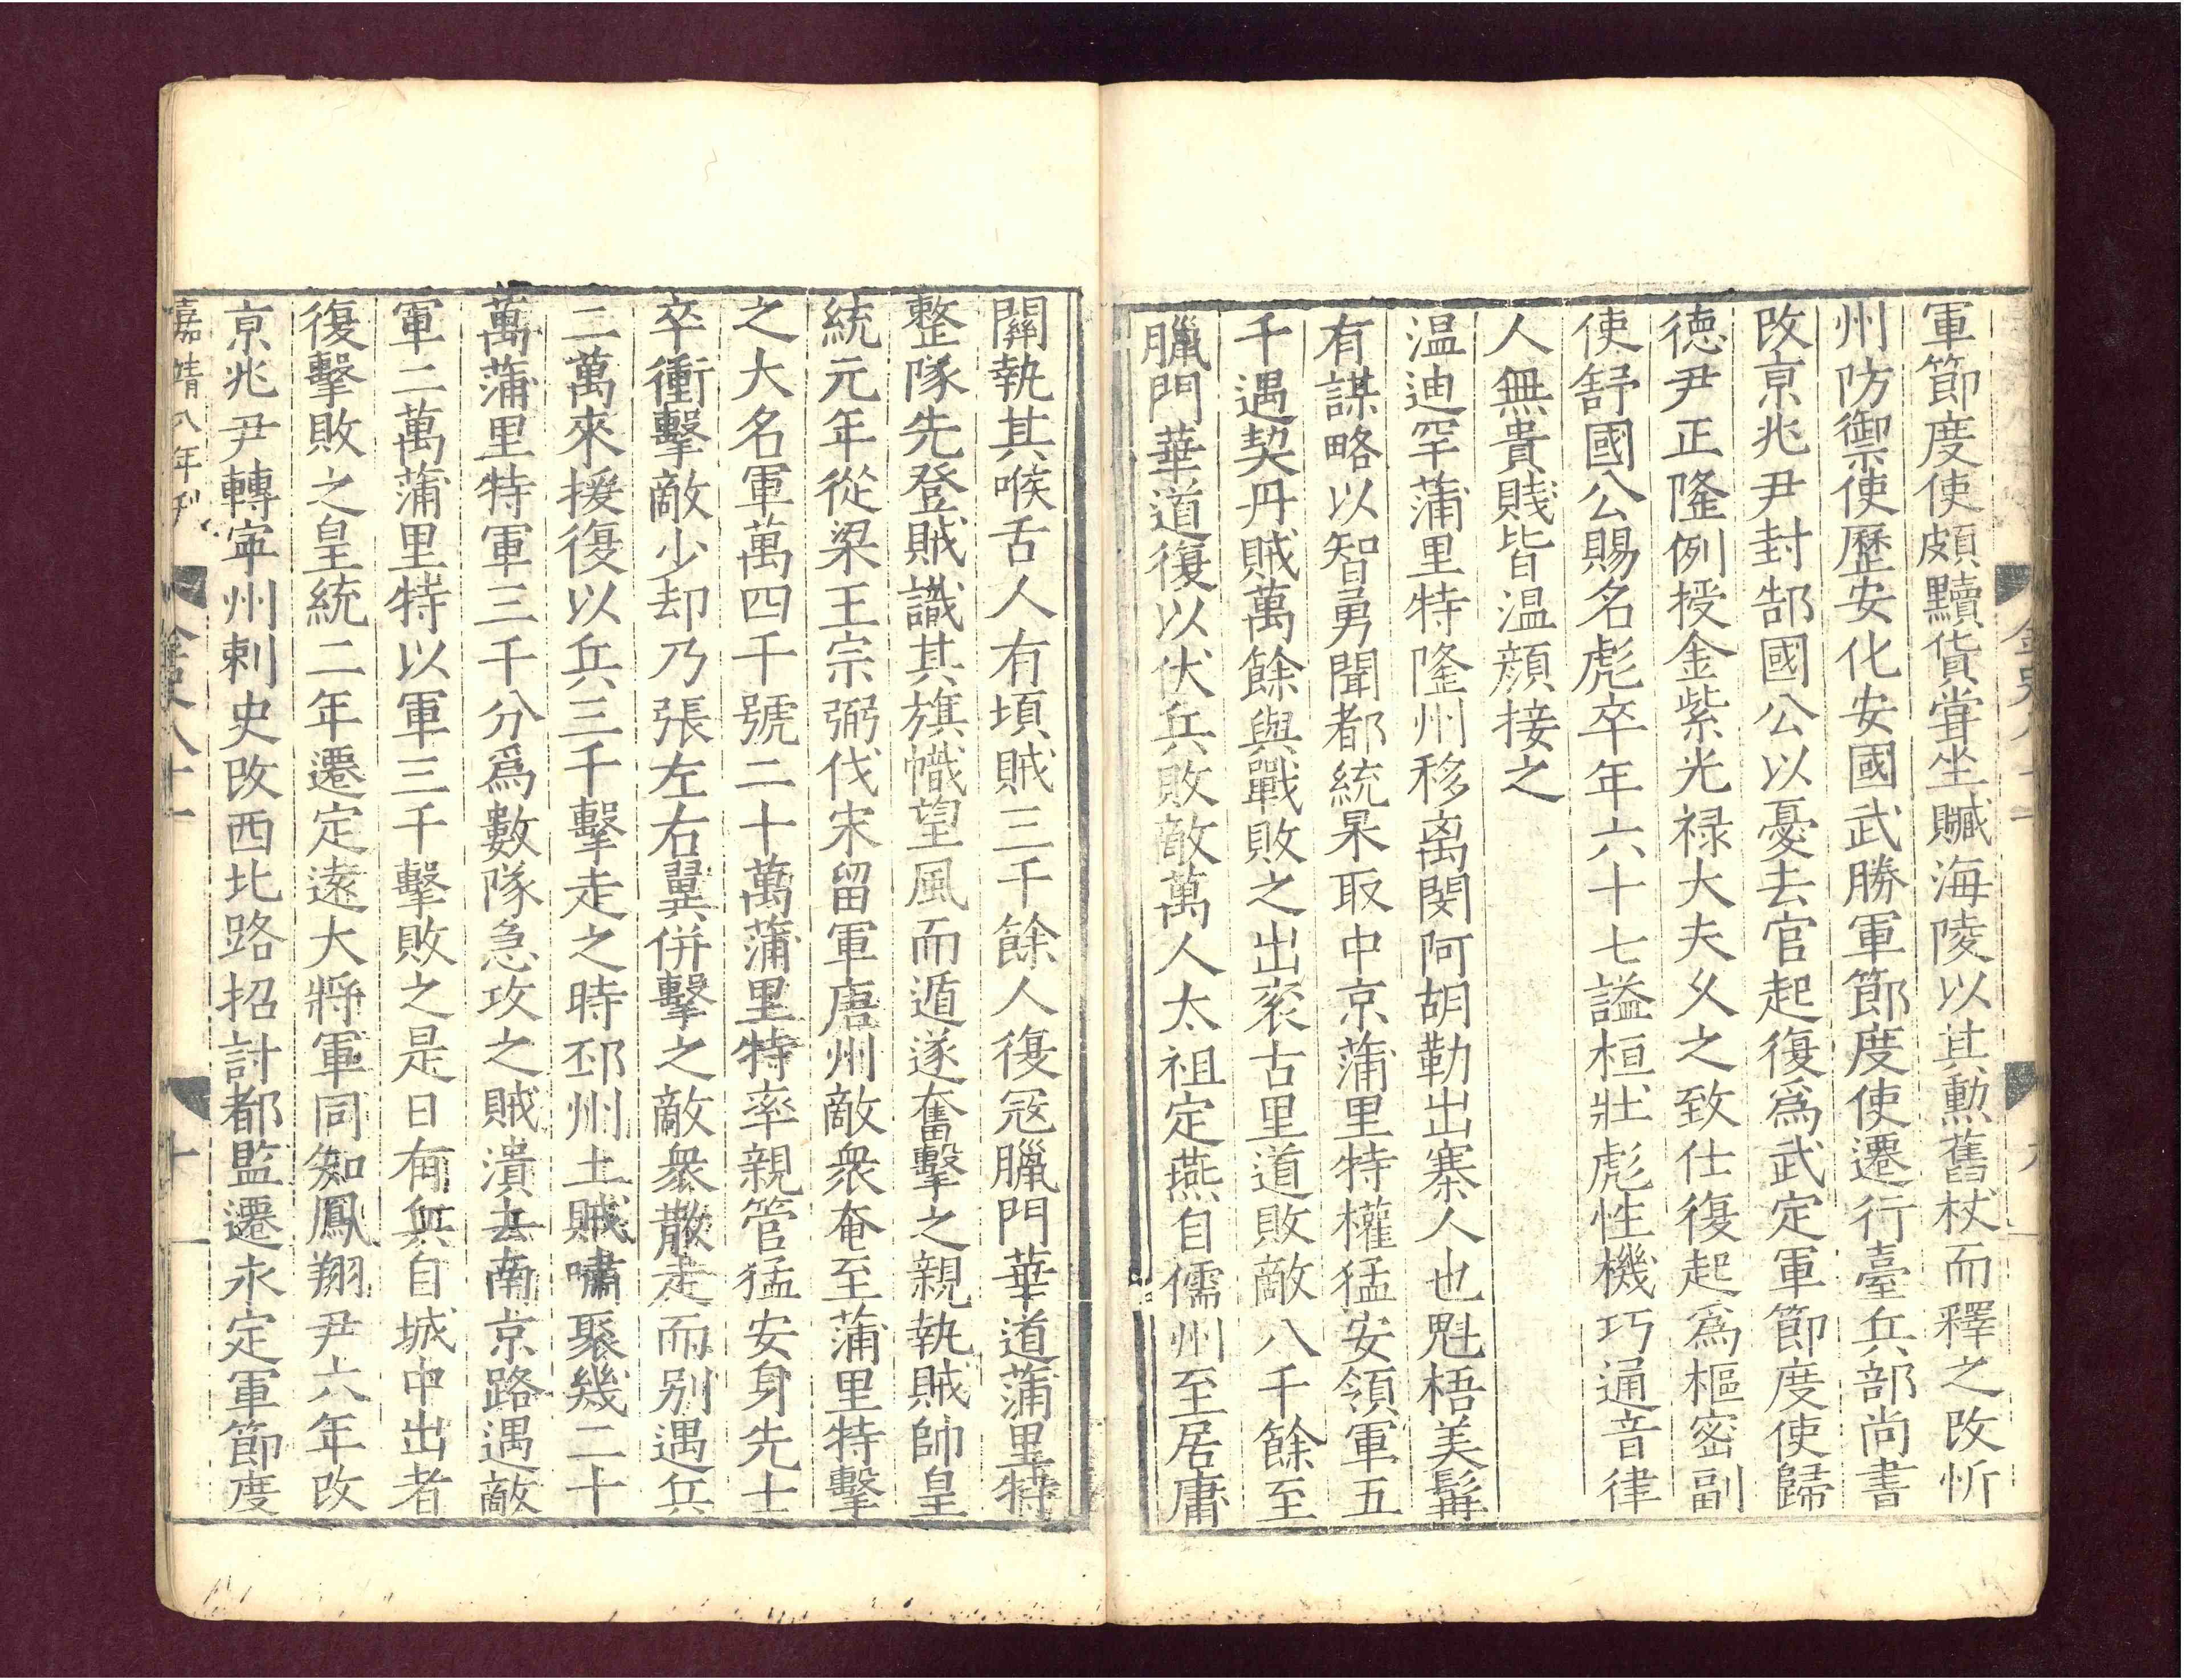 軍節度使頗黷貨嘗坐贓海陵以其勲舊杖而釋之改忻
州防禦使歷安化安國武勝軍節度使遷行臺兵部尚書
改京兆尹封郜國公以憂去官起復爲武定軍節度使歸
徳尹正隆例授金紫光禄大夫乆之致仕復起爲樞密副
使舒國公賜名彪卒年六十七謚桓壯彪性機巧通音律
人無貴賤皆温顔接之
温迪罕蒲里特隆州移离閔阿胡勒出寨人也魁梧美髯
有謀略以智勇聞都統杲取中京蒲里特權猛安領軍五
千遇契丹賊萬餘與戰敗之出衮古里道敗敵八千餘至
臘門華道復以伏兵敗敵萬人太祖定燕自儒州至居庸
關執其喉舌人有頃賊三千餘人復冦臘門華道蒲里特
整隊先登賊識其旗幟望風而遁遂奮擊之親執賊帥皇
統元年從梁王宗弼伐宋留軍唐州敵衆奄至蒲里特擊
之大名軍萬四千號二十萬蒲里特率親管猛安身先士
卒衝擊敵少却乃張左右翼併擊之敵衆散走而别遇兵
二萬來援復以兵三千擊走之時邳州土賊嘯聚幾二十
萬蒲里特軍三千分爲數隊急攻之賊潰去南京路遇敵
軍二萬蒲里特以軍三千擊敗之是日有兵自城中出者
復擊敗之皇統二年遷定遠大將軍同知鳳翔尹六年改
京兆尹轉寧州刺史改西北路招討都監遷永定軍節度
嘉靖八年刊 金史八十一 十